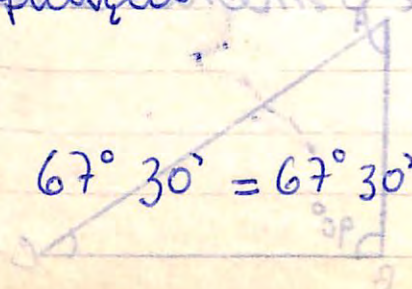 67° 30' = 67° 30'